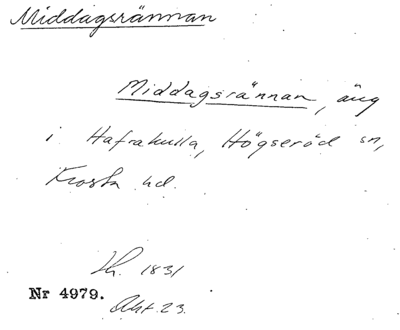 Middagsrännan
Middagsrännan, äng
i Hafrakulla, Högseröd sn,
Frosta hd.
1831
Nr 4979.
Akt. 23.